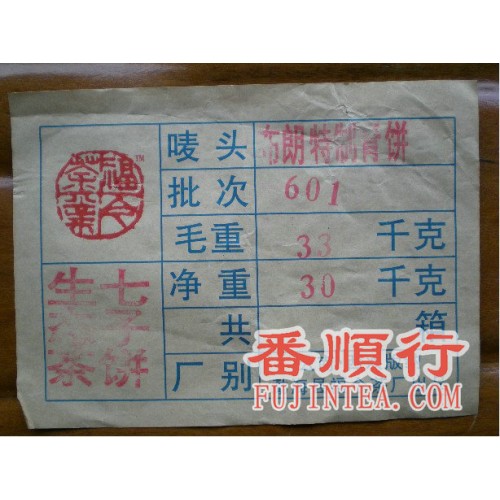 唛头 布朗特制青饼
批次 601
毛重 33 千克
净重 30 千克
共 箱
厂别
七子饼
生态茶
福元茶业
TM
番順行
FUJINTEA.COM